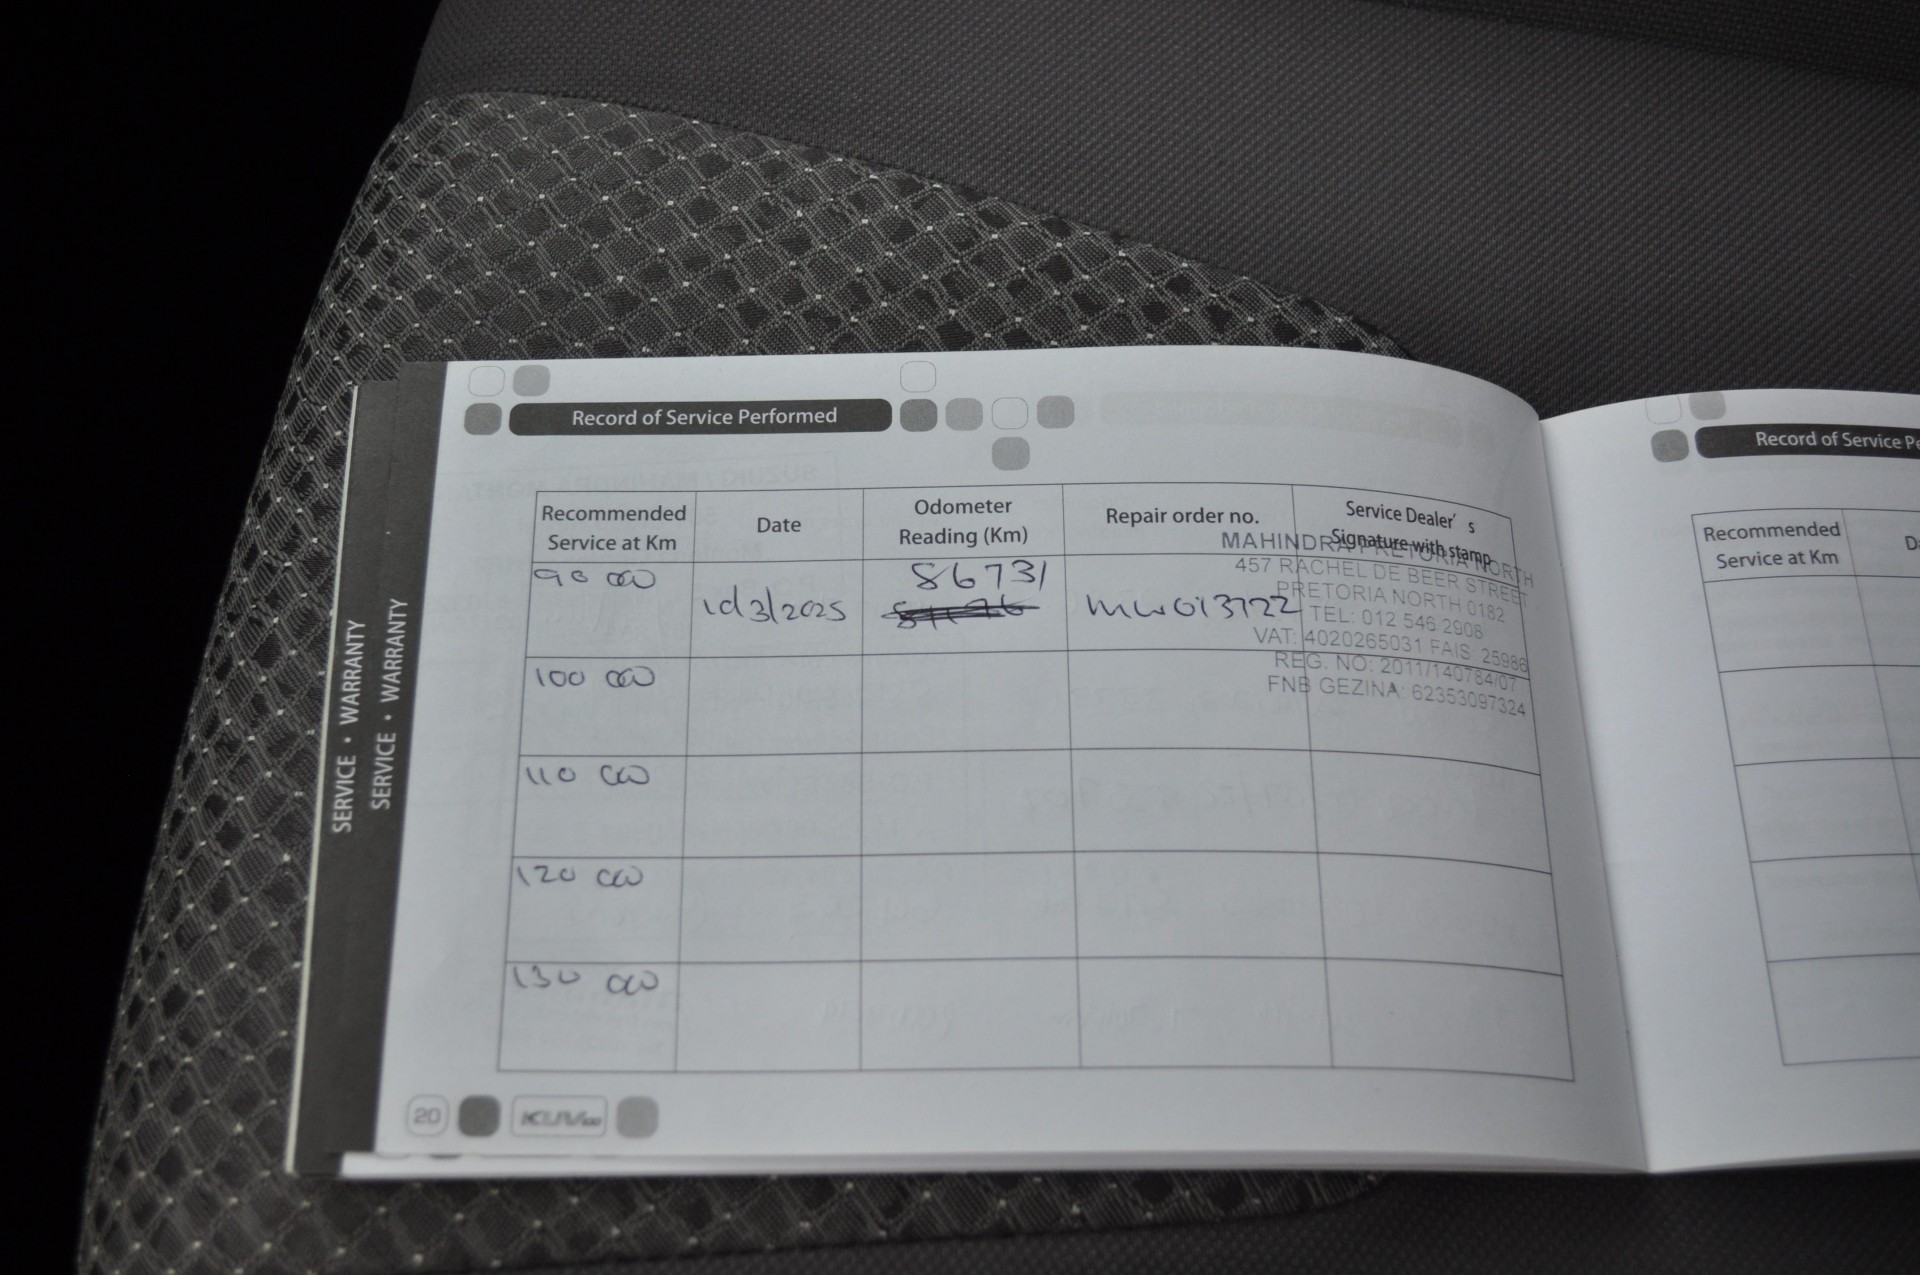 Record of Service Performed
Recommended Service at Km
Date
Odometer Reading (Km)
Repair order no.
Service Dealer's Signature with stamp
90 000
10/3/2025
86731
MW013722
MAHINDRA PRETORIA NORTH
457 RACHEL DE BEER STREET
PRETORIA NORTH 0182
TEL: 012 546 2908
VAT: 4020265031 FAIS: 25986
REG. NO: 2011/140784/07
FNB GEZINA: 62353097324
100 000
110 000
120 000
130 000
20
KUV100
SERVICE • WARRANTY
SERVICE • WARRANTY
Record of Service
Recommended Service at Km